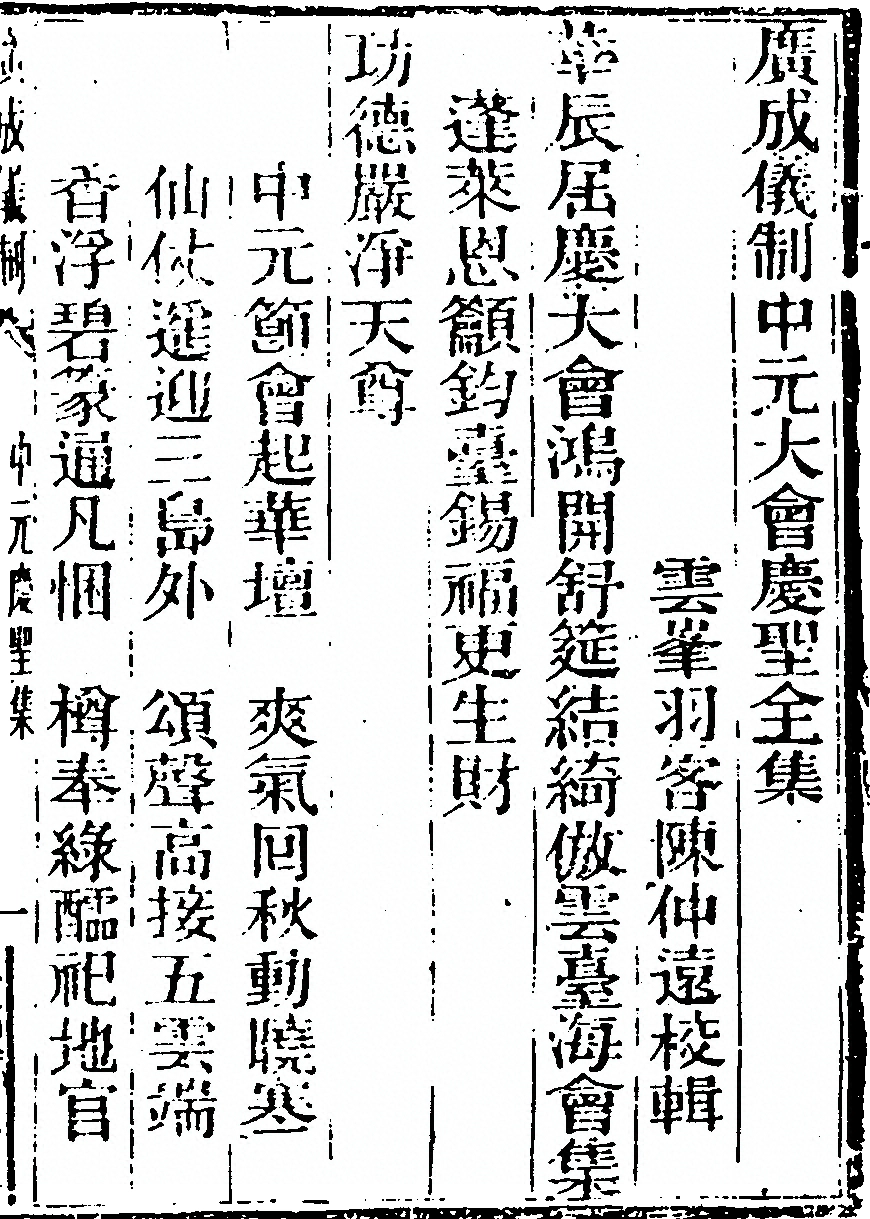 廣成儀制中元大會慶聖全集
雲峯羽客陳仲遠校輯
華辰屆慶大會鴻開舒筵結綺倣雲臺海會集
蓬萊恩籲鈞臺錫福更生財
功德嚴淨天尊
中元節會起華壇　爽氣回秋動曉寒
仙仗遥迎三島外　頌聲高接五雲端
音浮碧篆通凡悃　樽奉綠醽祀地官
廣成儀制　中元慶聖集　一